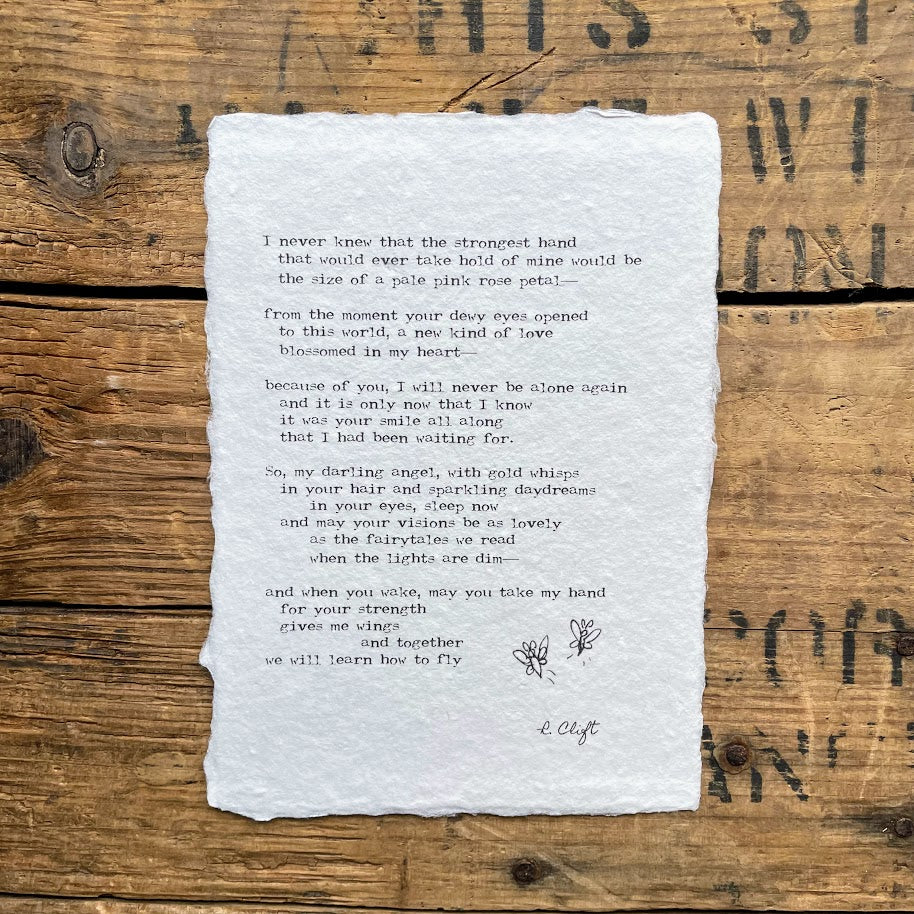 I never knew that the strongest hand
that would ever take hold of mine would be
the size of a pale pink rose petal—
from the moment your dewy eyes opened
to this world, a new kind of love
blossomed in my heart—
because of you, I will never be alone again
and it is only now that I know
it was your smile all along
that I had been waiting for.
So, my darling angel, with gold whisps
in your hair and sparkling daydreams
in your eyes, sleep now
and may your visions be as lovely
as the fairytales we read
when the lights are dim—
and when you wake, may you take my hand
for your strength
gives me wings
and together
we will learn how to fly
R. Clift